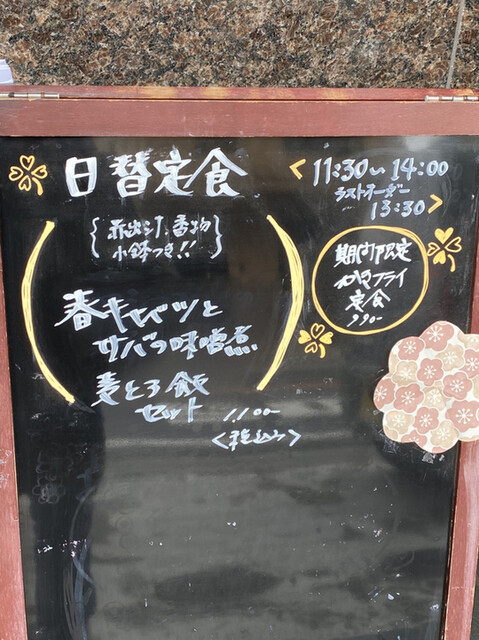 日替定食
<11:30~14:00
ラストオーダー
13:30>
{赤出汁、香物
小鉢つき!!}
期間限定
カキフライ
定食
990-
春キャベツと
サバの味噌煮
麦とろ飯
セット
1,100-
<税込>